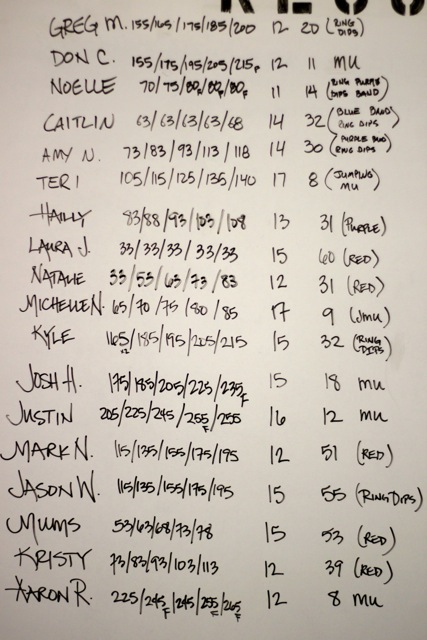 GREG M. 155/165/175/185/200 12 20 (RING DIPS)
DON C. 155/175/195/205/215F 12 11 MU
NOELLE 70/75/80F/80F/80F 11 14 (RING PURPLE DIPS BAND)
CAITLIN 63/63/63/63/68 14 32 (BLUE BAND RING DIPS)
AMY N. 73/83/93/113/118 14 30 (PURPLE BND RING DIPS)
TERI 105/115/125/135/140 17 8 (JUMPING MU)
HAILLY 83/88/93/103/108 13 31 (PURPLE)
LAURA J. 33/33/33/33/33 15 60 (RED)
NATALIE 33/53/63/73/83 12 31 (RED)
MICHELLE N. 65/70/75/80/85 17 9 (JMU)
KYLE 165/185/195/205/215 15 32 (RING DIPS)
JOSH H. 175/185/205/225/235F 15 18 MU
JUSTIN 205/225/245/255F/255 16 12 MU
MARK N. 115/135/155/175/195 12 51 (RED)
JASON W. 115/135/155/175/195 15 55 (RING DIPS)
MUMS 53/63/68/73/78 15 53 (RED)
KRISTY 73/83/93/103/113 12 39 (RED)
AARON R. 225/245F/245/255F/265F 12 8 MU